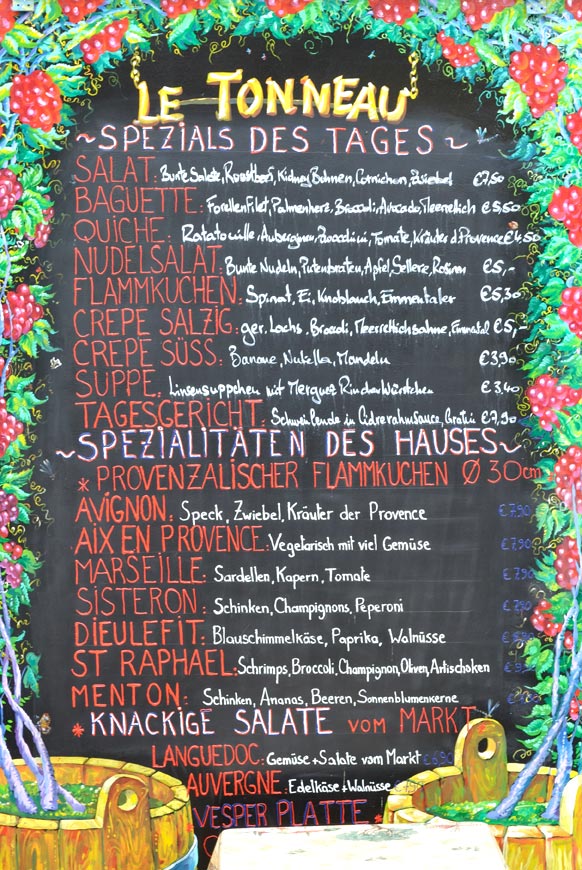 LE TONNEAU
~SPEZIALS DES TAGES~
SALAT: Bunte Salate, Roastbeef, Kidney Bohnen, Cornichon, Zwiebel €7,50
BAGUETTE: Forellenfilet, Palmenherz, Broccoli, Avocado, Meerrettich €5,50
QUICHE: Ratatouille: Aubergine, Zucchini, Tomate, Kräuter d. Provence €4,50
NUDELSALAT: Bunte Nudeln, Putenbraten, Apfel, Sellerie, Rosinen €5,-
FLAMMKUCHEN: Spinat, Ei, Knoblauch, Emmentaler €5,30
CREPE SALZIG: ger. Lachs, Broccoli, Meerrettichsahne, Emmental €5,-
CREPE SÜSS: Banane, Nutella, Mandeln €3,90
SUPPE: Linsensuppchen mit Merguez Rinderwürstchen €3,40
TAGESGERICHT: Schweinelende in Cidrerahmsauce, Gratin €7,90
~SPEZIALITÄTEN DES HAUSES~
* PROVENZALISCHER FLAMMKUCHEN Ø 30cm
AVIGNON: Speck, Zwiebel, Kräuter der Provence €7,90
AIX EN PROVENCE: Vegetarisch mit viel Gemüse €7,90
MARSEILLE: Sardellen, Kapern, Tomate €7,90
SISTERON: Schinken, Champignons, Peperoni €7,90
DIEULEFIT: Blauschimmelkäse, Paprika, Walnüsse
ST RAPHAEL: Schrimps, Broccoli, Champignon, Oliven, Artischoken
MENTON: Schinken, Ananas, Beeren, Sonnenblumenkerne
* KNACKIGE SALATE VOM MARKT
LANGUEDOC: Gemüse + Salate vom Markt
AUVERGNE: Edelkäse + Walnüsse
* VESPER PLATTE *